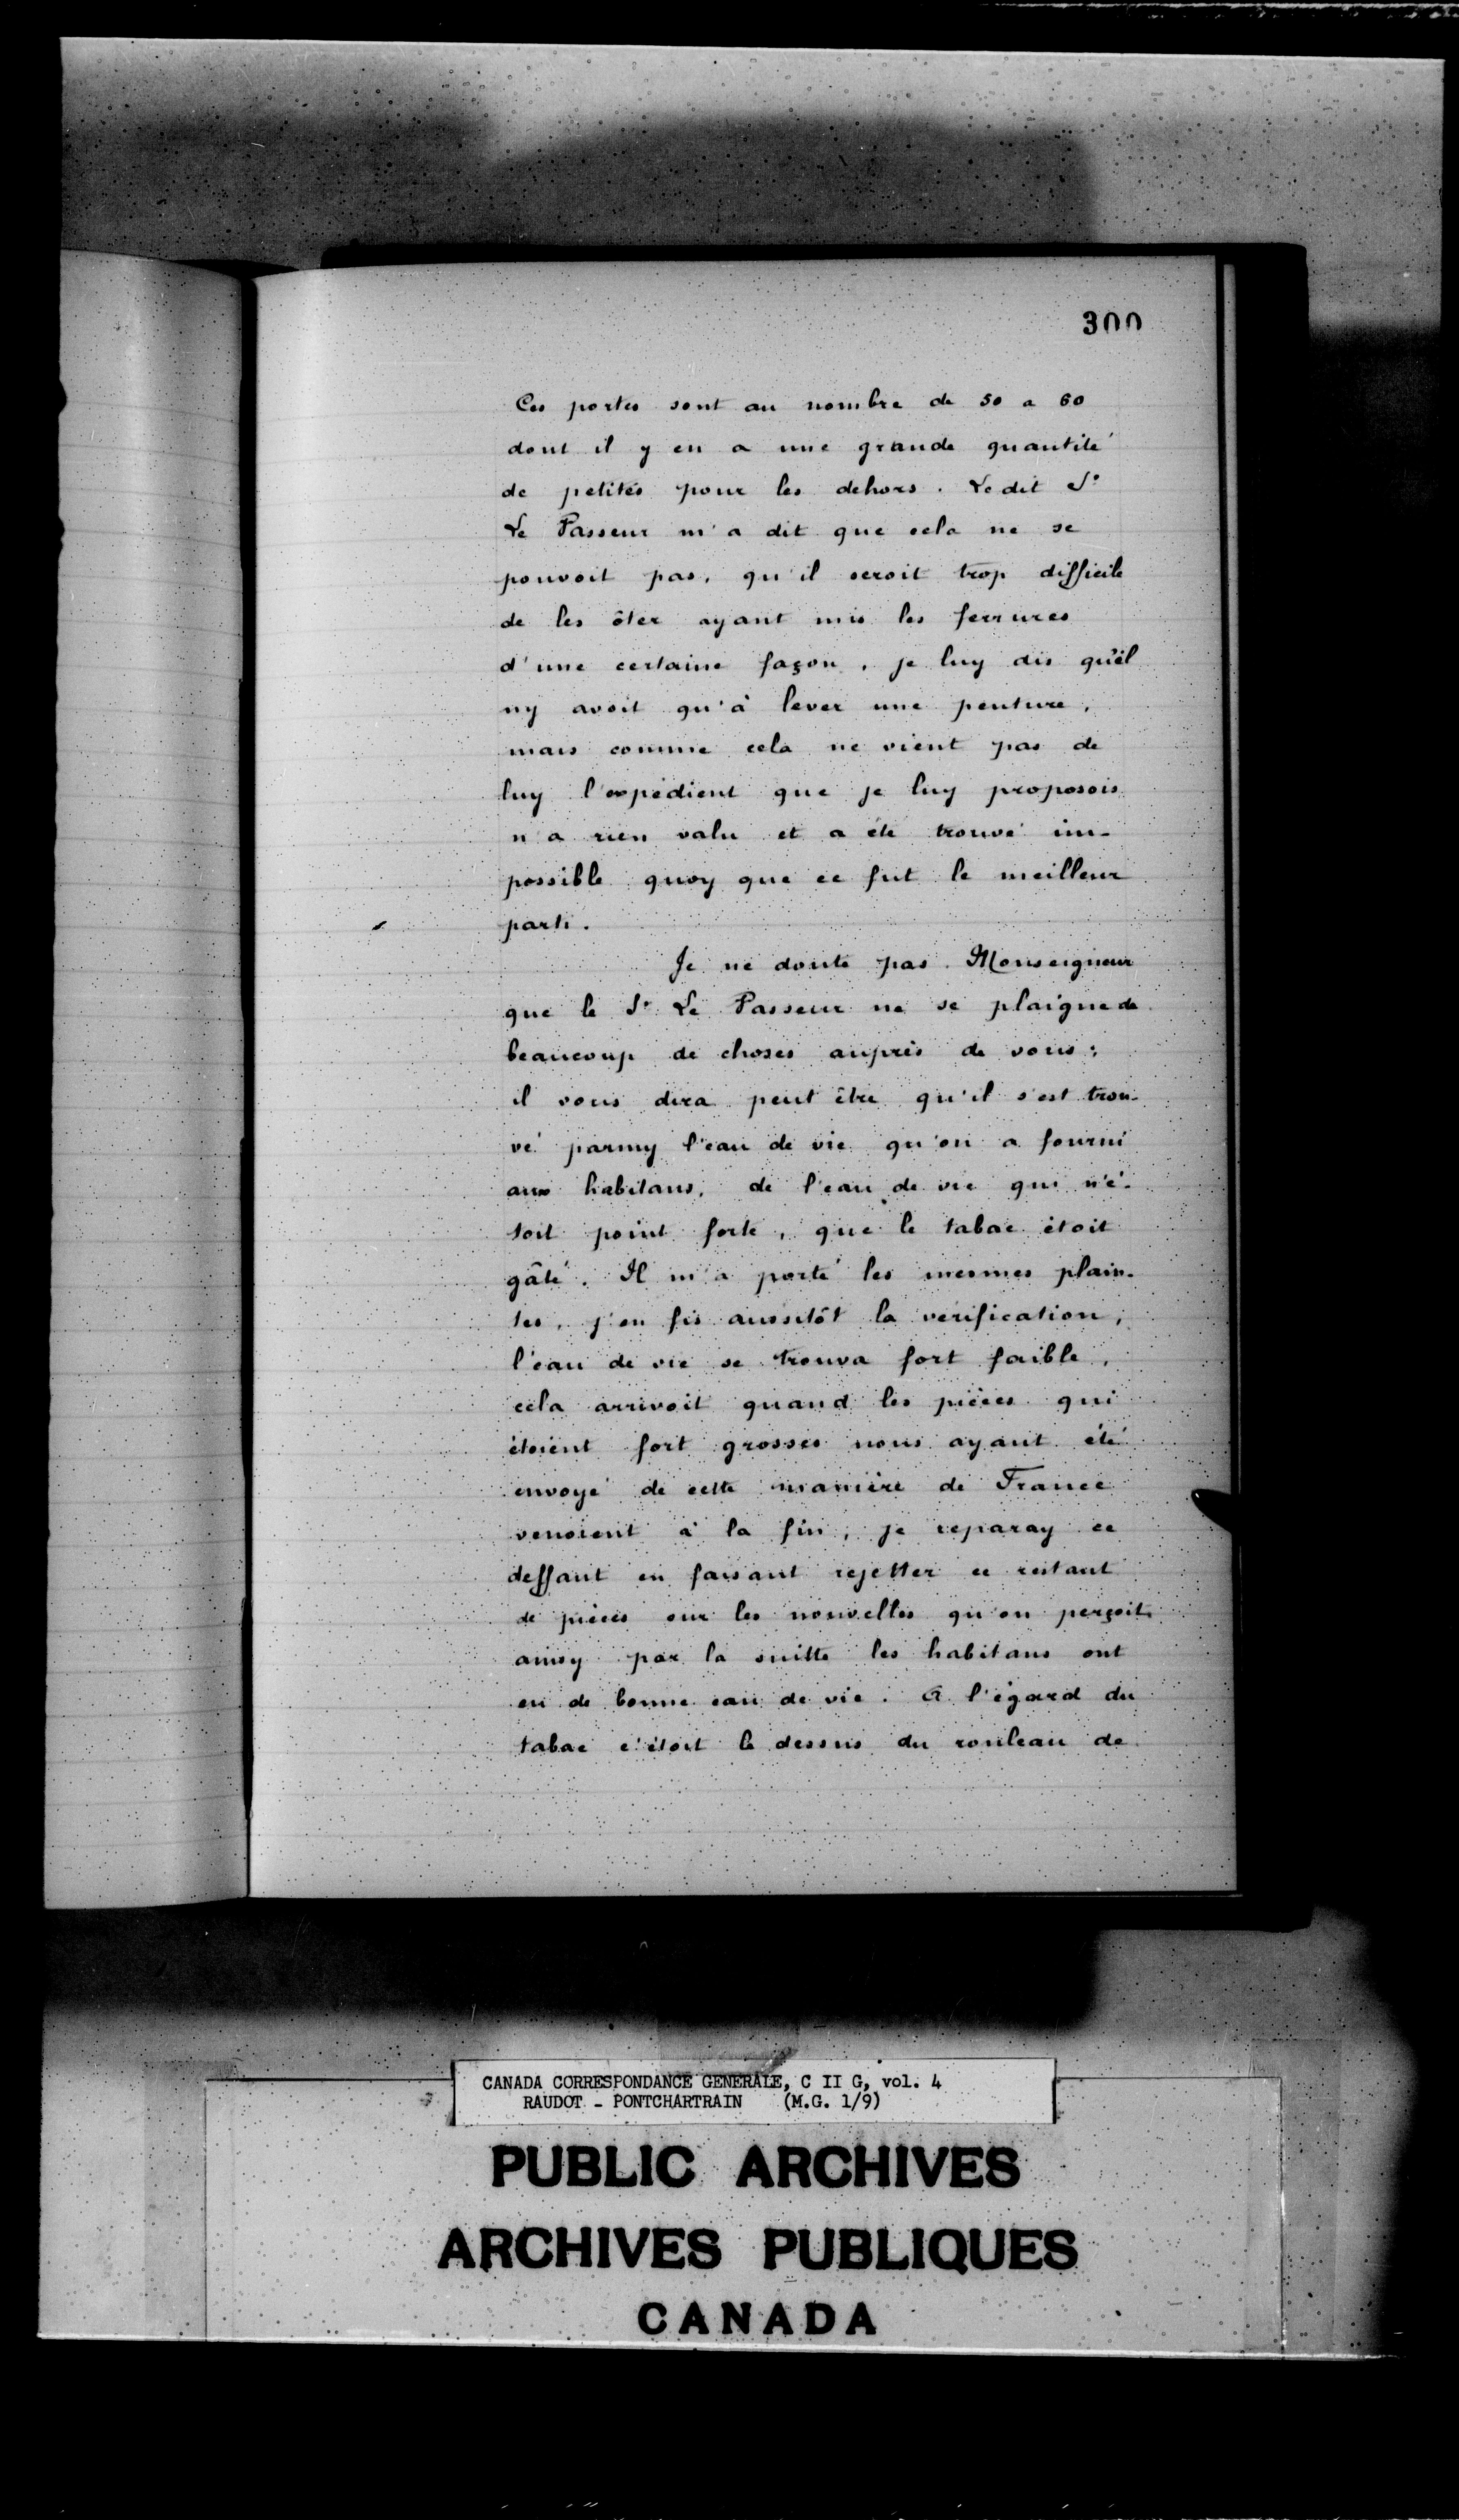 300
Ces portes sont au nombre de 50 a 60
dont il y en a une grande quantité
de petites pour les dehors. Le dit Sr
Le Passeur m'a dit que cela ne se
pouvoit pas, qu'il seroit trop difficile
de les ôter ayant mis les ferrures
d'une certaine façon, je luy dis qu'il
ny avoit qu'à lever une penture,
mais comme cela ne vient pas de
luy l'expédient que je luy proposois
n'a rien valu et a été trouvé im-
possible quoy que ce fut le meilleur
parti.
Je ne doute pas Monseigneur
que le Sr Le Passeur ne se plaigne de
beaucoup de choses auprès de vous;
il vous dira peut être qu'il s'est trou-
vé parmy l'eau de vie qu'on a fourni
aux habitans, de l'eau de vie qui n'é-
toit point forte, que le tabac étoit
gâté. Il m'a porté les mesmes plain-
tes, j'en fis aussitôt la verification,
l'eau de vie se trouva fort faible,
cela arrivoit quand les pièces qui
étoient fort grosses nous ayant été
envoyé de cette manière de France
venoient à la fin, je reparay ce
deffaut en faisant rejetter ce restant
de pièces sur les nouvelles qu'on perçoit
ainsy par la suitte les habitans ont
eu de bonne eau de vie. A l'égard du
tabac c'étoit le dessus du rouleau de
CANADA CORRESPONDANCE GENERALE, C II G, vol. 4
RAUDOT - PONTCHARTRAIN (M.G. 1/9)
PUBLIC ARCHIVES
ARCHIVES PUBLIQUES
CANADA